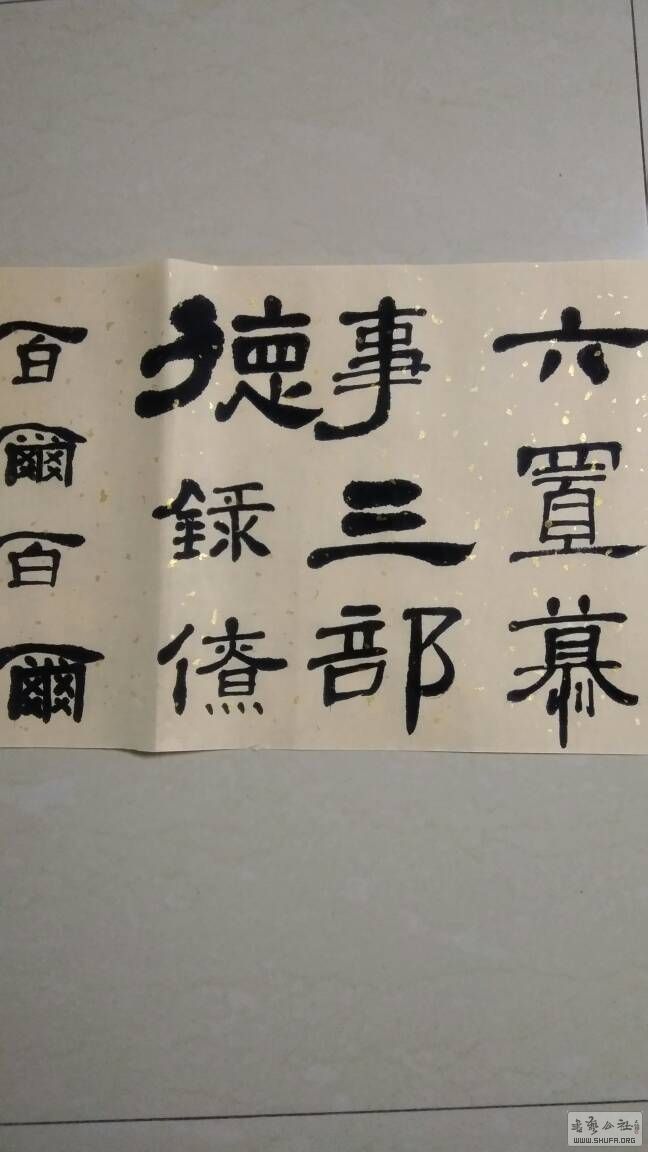 六置慕
事三部
德録僚
百爾百爾
书艺公社
WWW.SHUFA.ORG